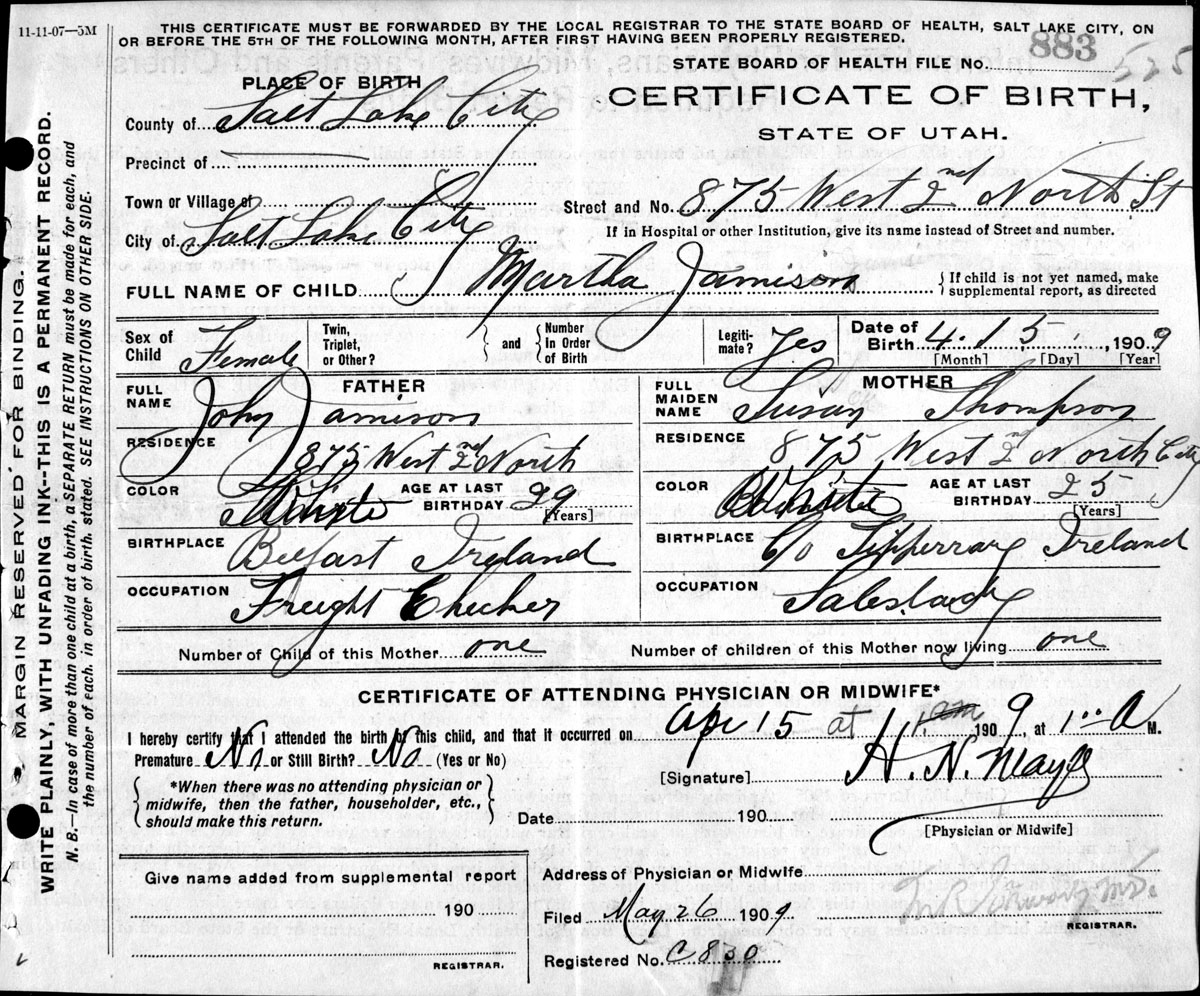 11-11-07—5M
THIS CERTIFICATE MUST BE FORWARDED BY THE LOCAL REGISTRAR TO THE STATE BOARD OF HEALTH, SALT LAKE CITY, ON
OR BEFORE THE 5TH OF THE FOLLOWING MONTH, AFTER FIRST HAVING BEEN PROPERLY REGISTERED.
STATE BOARD OF HEALTH FILE No. 883
525
PLACE OF BIRTH
CERTIFICATE OF BIRTH,
STATE OF UTAH.
County of Salt Lake City
Precinct of
Town or Village of
Street and No. 875 West 2nd North St
City of Salt Lake City
If in Hospital or other Institution, give its name instead of Street and number.
FULL NAME OF CHILD Martha Jamison
{ If child is not yet named, make
supplemental report, as directed
Sex of Child Female
Twin, Triplet, or Other?
} and {
Number In Order of Birth
Legiti-mate? Yes
Date of Birth 4 . 15 . , 1909
[Month] [Day] [Year]
FATHER
FULL NAME John Jamison
MOTHER
FULL MAIDEN NAME Susan Thompson
RESIDENCE 875 West 2nd North
RESIDENCE 875 West 2nd North City
COLOR White
AGE AT LAST BIRTHDAY 29
[Years]
COLOR White
AGE AT LAST BIRTHDAY 25
[Years]
BIRTHPLACE Belfast Ireland
BIRTHPLACE C/o Tipperrary Ireland
OCCUPATION Freight Checker
OCCUPATION Saleslady
Number of Child of this Mother one
Number of children of this Mother now living one
CERTIFICATE OF ATTENDING PHYSICIAN OR MIDWIFE*
I hereby certify that I attended the birth of this child, and that it occurred on Apr 15 at 1 1. am 1909, at 1:00 A M.
Premature No or Still Birth? No (Yes or No)
[Signature] H. N. Mayo
{ *When there was no attending physician or
midwife, then the father, householder, etc.,
should make this return. }
Date 190
[Physician or Midwife]
Give name added from supplemental report
190
REGISTRAR.
Address of Physician or Midwife
Filed May 26 1909
M.D.
REGISTRAR.
Registered No. C830
MARGIN RESERVED FOR BINDING.
WRITE PLAINLY, WITH UNFADING INK--THIS IS A PERMANENT RECORD.
N. B.—In case of more than one child at a birth, a SEPARATE RETURN must be made for each, and
the number of each. in order of birth. stated. SEE INSTRUCTIONS ON OTHER SIDE.